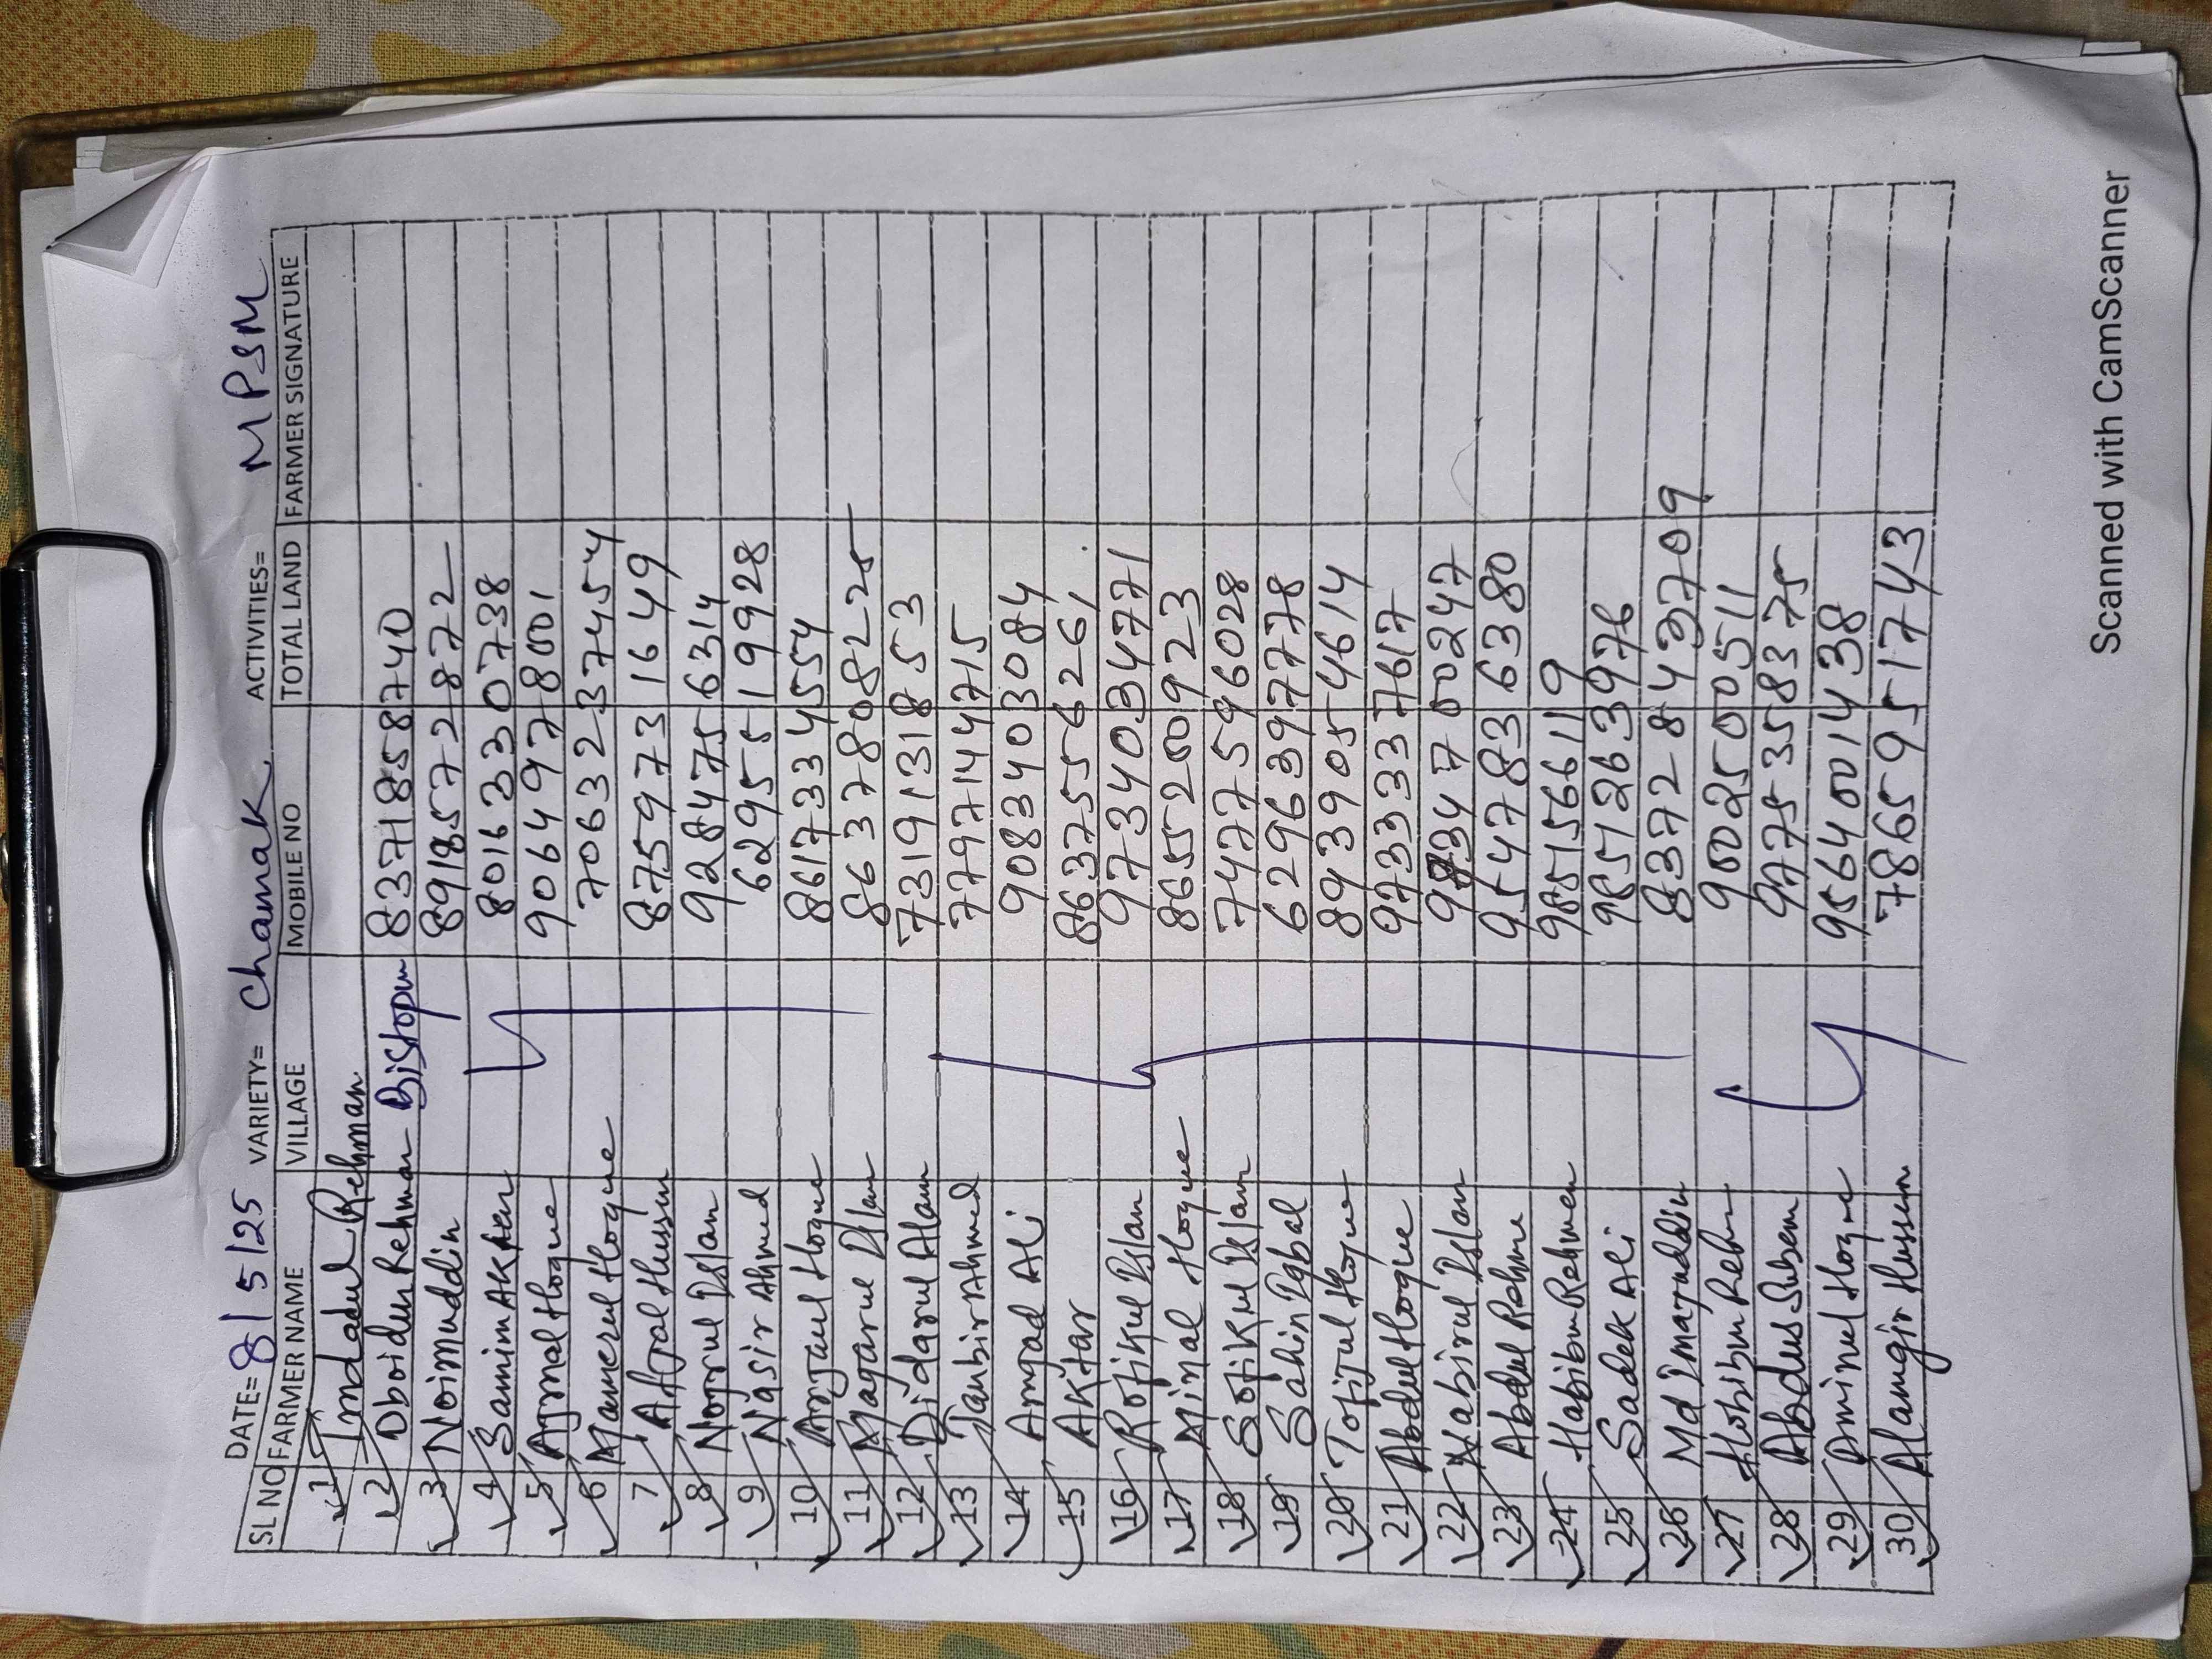 DATE= 8/5/25 VARIETY= Chamak ACTIVITIES= MPSM
SL NO FARMER NAME VILLAGE MOBILE NO TOTAL LAND FARMER SIGNATURE
1 Imdadul Rehman
2 Oboidur Rehman Bistopur 8371858740
3 Noimuddin 8918572872
4 Samim Aktar 8016330738
5 Ajmal Hoque 9064978001
6 Mamerul Hoque 7063237454
7 Afjal Hussen 8759731649
8 Nojrul Islam 9284756314
9 Nasir Ahmed 6295519928
10 Anjaul Hoque 8617334554
11 Majarul Islam 8637808225
12 Didarul Alam 7319131853
13 Tanbir Ahmed 7797144715
14 Amjad Ali 9083403084
15 Aktar 8637556261
16 Rofikul Islam 9734034771
17 Minal Hoque 8655200923
18 Sofikul Islam 7477596028
19 Sahin Iqbal 6296397778
20 Tofijul Hoque 8939054614
21 Abdul Hoque 9733337617
22 Nabirul Islam 9734700247
23 Abdul Rehme 9547836380
24 Habibur Rehman 9851566119
25 Sadek Ali 9851263976
26 Md Imajuddin 8372843709
27 Hobibur Rehm 9002500511
28 Abdus Subem 9775358375
29 Aminul Hoque 9564001438
30 Alamgir Hussen 7865951743
Scanned with CamScanner